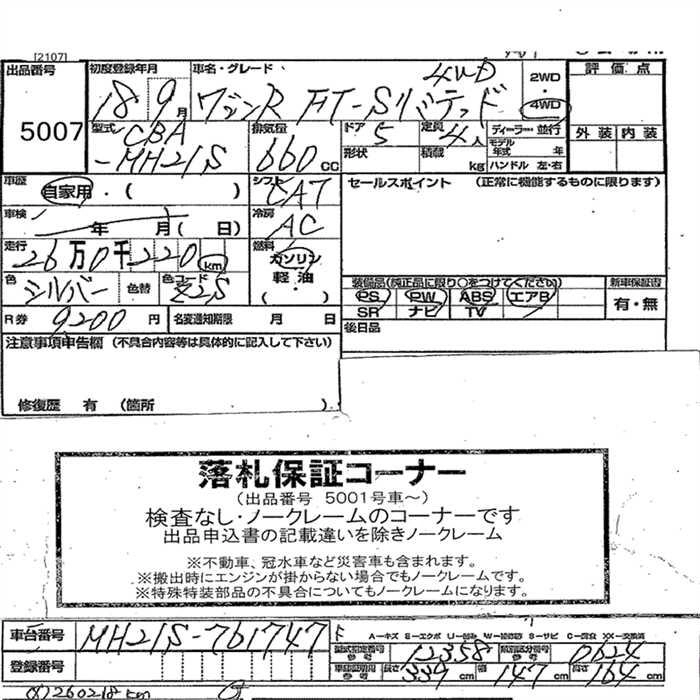 [2107]
出品番号
5007
初度登録年月
18 9月
車名・グレード
ワゴンR FT-Sリミテッド 4WD
2WD
・
4WD
評価点
外装 内装
型式
CBA
-MH21S
排気量
660 cc
ドア
5
定員
4人
ディーラー・並行
形状
積載
kg
モデル年式
年
ハンドル 左・右
車歴
自家用・( )
シフト
CAT
セールスポイント (正常に機能するものに限ります)
車検
年 月 ( 日)
冷房
AC
走行
26万0千220km
燃料
ガソリン
軽・油
( ・ )
色
シルバー
色替
色コード
Z2S
装備品(純正品に限り○をつけてください)
新車保証書
PS PW ABS エアB
SR ナビ TV
有・無
R券
9200円
名変通知期限 月 日
後日品
注意事項申告欄 (不具合内容等は具体的に記入して下さい)
修復歴 有 (箇所 )
落札保証コーナー
(出品番号 5001号車～)
検査なし・ノークレームのコーナーです
出品申込書の記載違いを除きノークレーム
※不動車、冠水車など災害車も含まれます。
※搬出時にエンジンが掛からない場合でもノークレームです。
※特殊特装部品の不具合についてもノークレームになります。
車台番号
MH21S-761747
A-キズ E-エクボ U-凹み W-補修跡 S-サビ C-腐食 XX-交換済
型式指定番号
参考
12358
類別区分番号
参考
0624
登録番号
長さ
339cm
幅
147cm
高さ
164cm